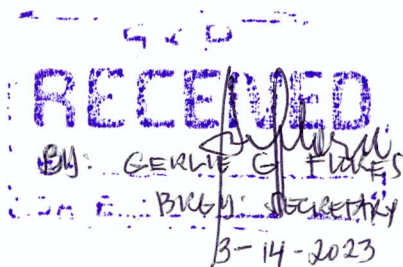 RECEIVED
BY: GERLIE G. FLORES
BRGY. SECRETARY
3-14-2023